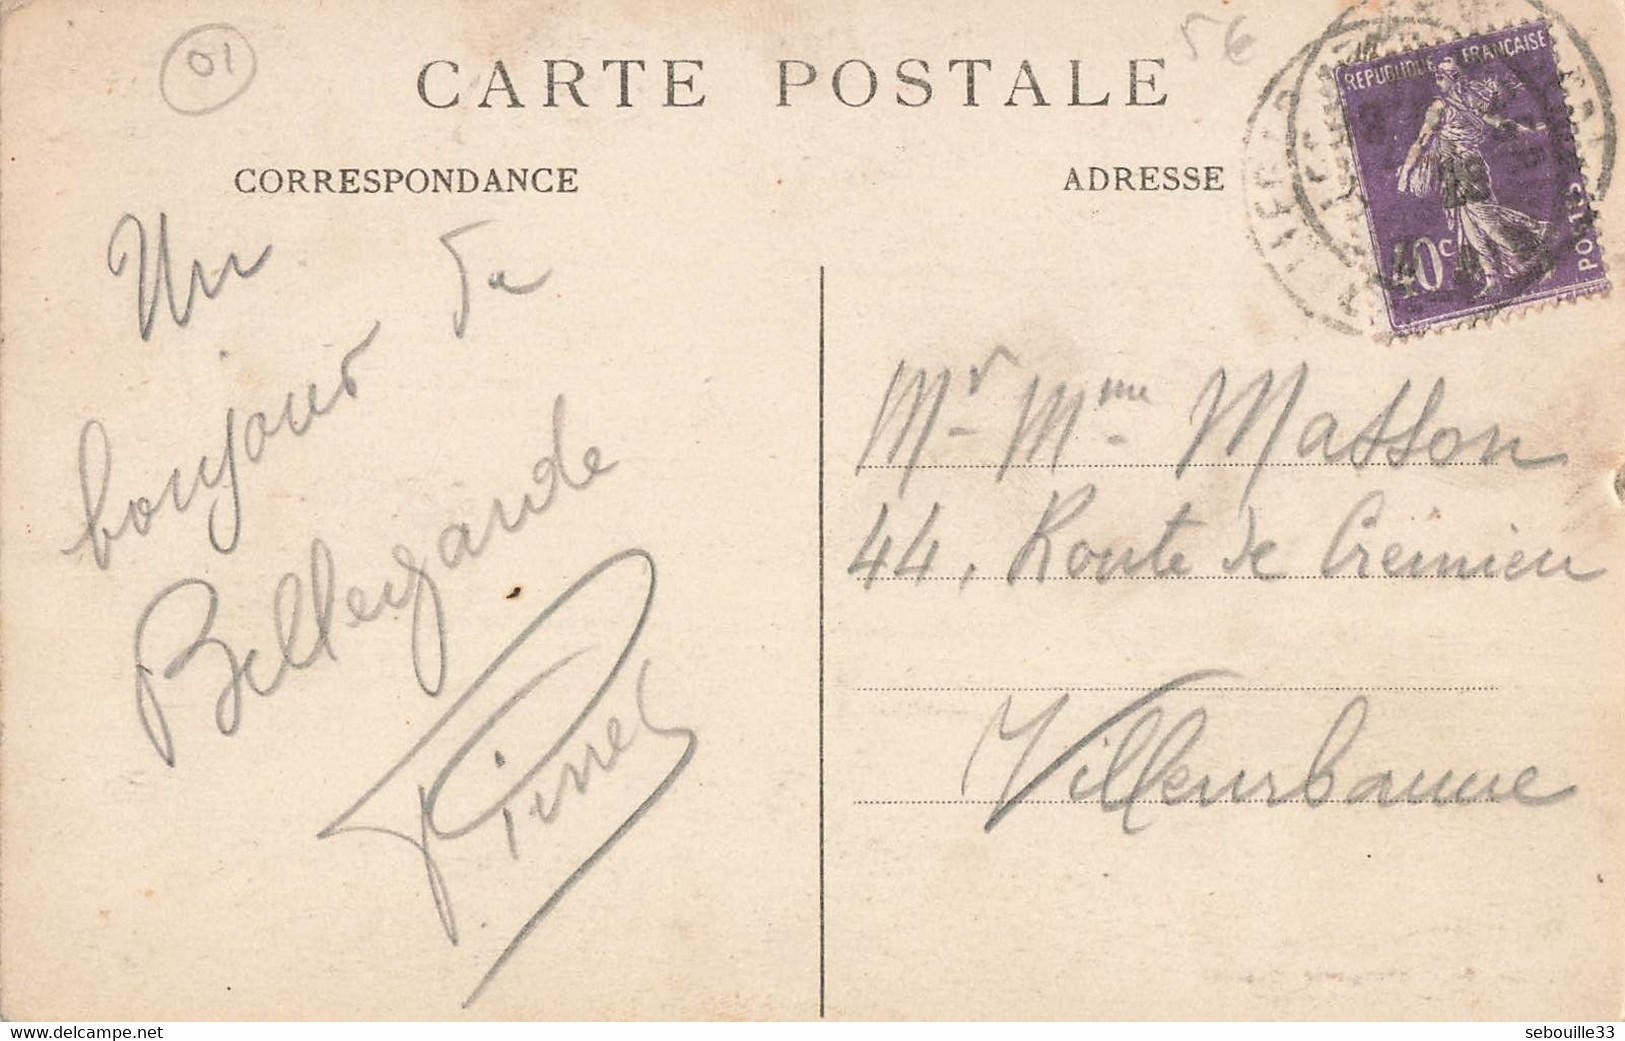 01
56
CARTE POSTALE
CORRESPONDANCE
ADRESSE
REPUBLIQUE FRANÇAISE
POSTES
40c
Un
bonjour de
Bellegarde
Pierre
Mr Mme Masson
44, Route de Crémieu
Villeurbanne
sebouille33
www.delcampe.net